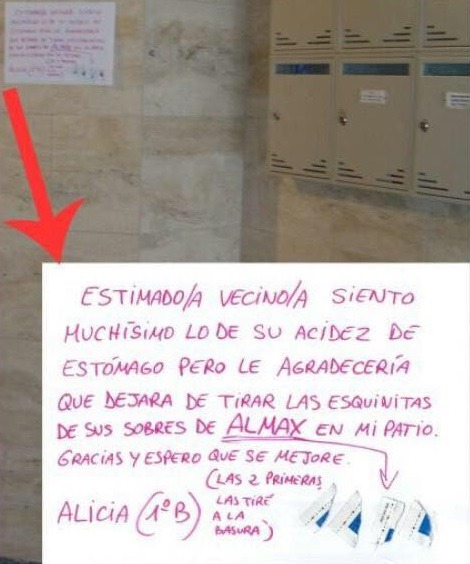 ESTIMADO/A VECINO/A SIENTO
MUCHÍSIMO LO DE SU ACIDEZ DE
ESTÓMAGO PERO LE AGRADECERÍA
QUE DEJARA DE TIRAR LAS ESQUINITAS
DE SUS SOBRES DE ALMAX EN MI PATIO.
GRACIAS Y ESPERO QUE SE MEJORE.
(LAS 2 PRIMERAS
LAS TIRÉ
A LA
BASURA)
ALICIA (1º B)